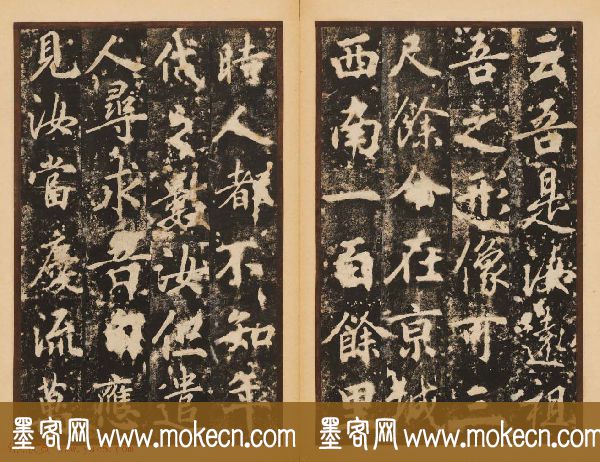 云吾是汝遠祖
吾之形像可三
尺餘今在京城
西南一百餘里
時人都不知年
代之數汝但遣
人尋求吾自應
見汝當慶流萬
墨客网 www.mokecn.com
墨客网 www.mokecn.com